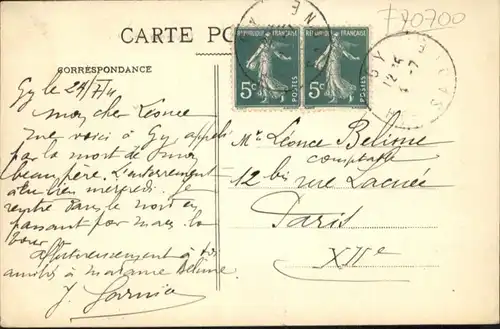 F70700
CARTE PO
CORRESPONDANCE
REPUBLIQUE FRANÇAISE
5c POSTES
REPUBLIQUE FRANÇAISE
5c POSTES
GY
12 15
-7
Gy le 24/7/11
mon cher Léonce
me voici à Gy appelé
par la mort de mon
beau père. L'enterrement
a eu lieu mercredi. Je
rentre dans le nord en
passant par
affectueusement à toi
amitiés à madame Belime
J.
Mr Léonce Belime
comptable
12 bis rue Lacuée
Paris
XIIe